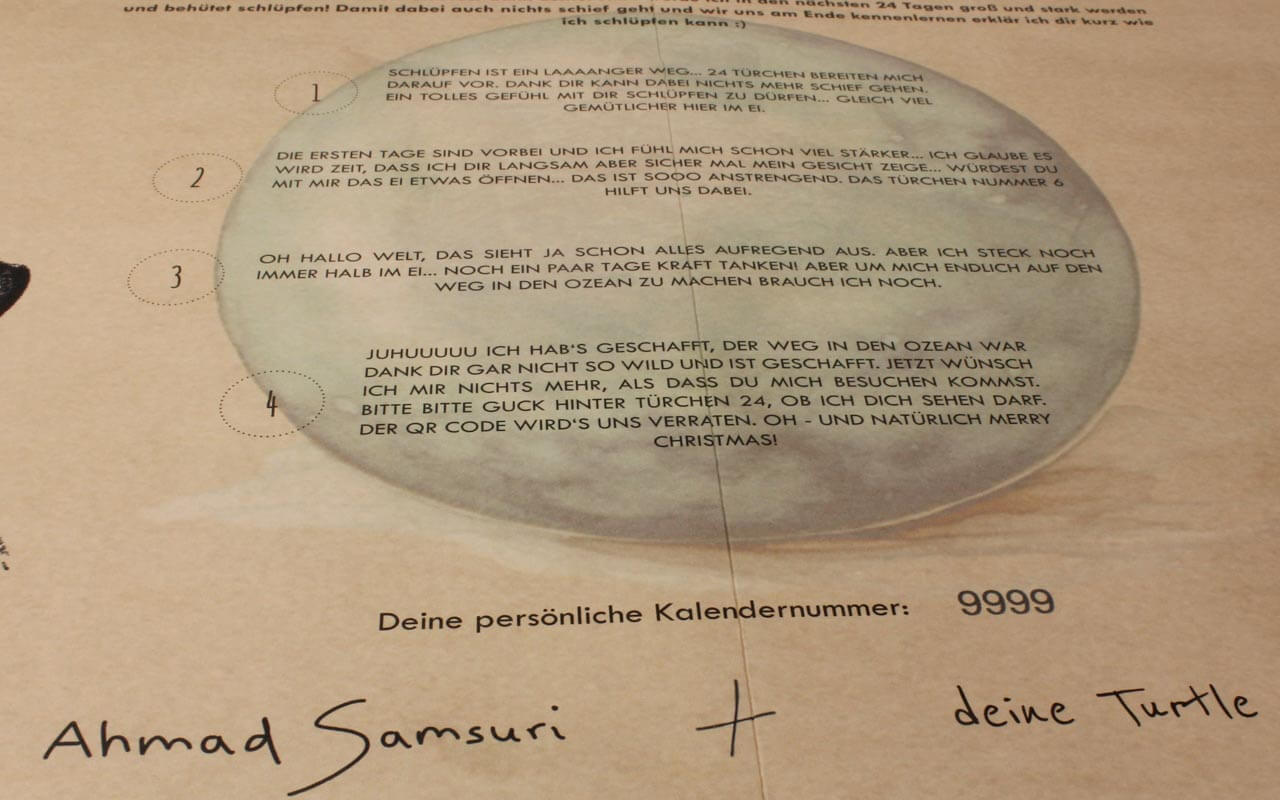 den nächsten 24 Tagen groß und stark werden
und behütet schlüpfen! Damit dabei auch nichts schief geht und wir uns am Ende kennenlernen erklär ich dir kurz wie
ich schlüpfen kann :)
1
SCHLÜPFEN IST EIN LAAAANGER WEG... 24 TÜRCHEN BEREITEN MICH
DARAUF VOR. DANK DIR KANN DABEI NICHTS MEHR SCHIEF GEHEN.
EIN TOLLES GEFÜHL MIT DIR SCHLÜPFEN ZU DÜRFEN... GLEICH VIEL
GEMÜTLICHER HIER IM EI.
2
DIE ERSTEN TAGE SIND VORBEI UND ICH FÜHL MICH SCHON VIEL STÄRKER... ICH GLAUBE ES
WIRD ZEIT, DASS ICH DIR LANGSAM ABER SICHER MAL MEIN GESICHT ZEIGE... WÜRDEST DU
MIT MIR DAS EI ETWAS ÖFFNEN... DAS IST SOOO ANSTRENGEND. DAS TÜRCHEN NUMMER 6
HILFT UNS DABEI.
3
OH HALLO WELT, DAS SIEHT JA SCHON ALLES AUFREGEND AUS. ABER ICH STECK NOCH
IMMER HALB IM EI... NOCH EIN PAAR TAGE KRAFT TANKEN! ABER UM MICH ENDLICH AUF DEN
WEG IN DEN OZEAN ZU MACHEN BRAUCH ICH NOCH.
4
JUHUUUUU ICH HAB'S GESCHAFFT, DER WEG IN DEN OZEAN WAR
DANK DIR GAR NICHT SO WILD UND IST GESCHAFFT. JETZT WÜNSCH
ICH MIR NICHTS MEHR, ALS DASS DU MICH BESUCHEN KOMMST.
BITTE BITTE GUCK HINTER TÜRCHEN 24, OB ICH DICH SEHEN DARF.
DER QR CODE WIRD'S UNS VERRATEN. OH - UND NATÜRLICH MERRY
CHRISTMAS!
Deine persönliche Kalendernummer: 9999
Ahmad Samsuri + deine Turtle